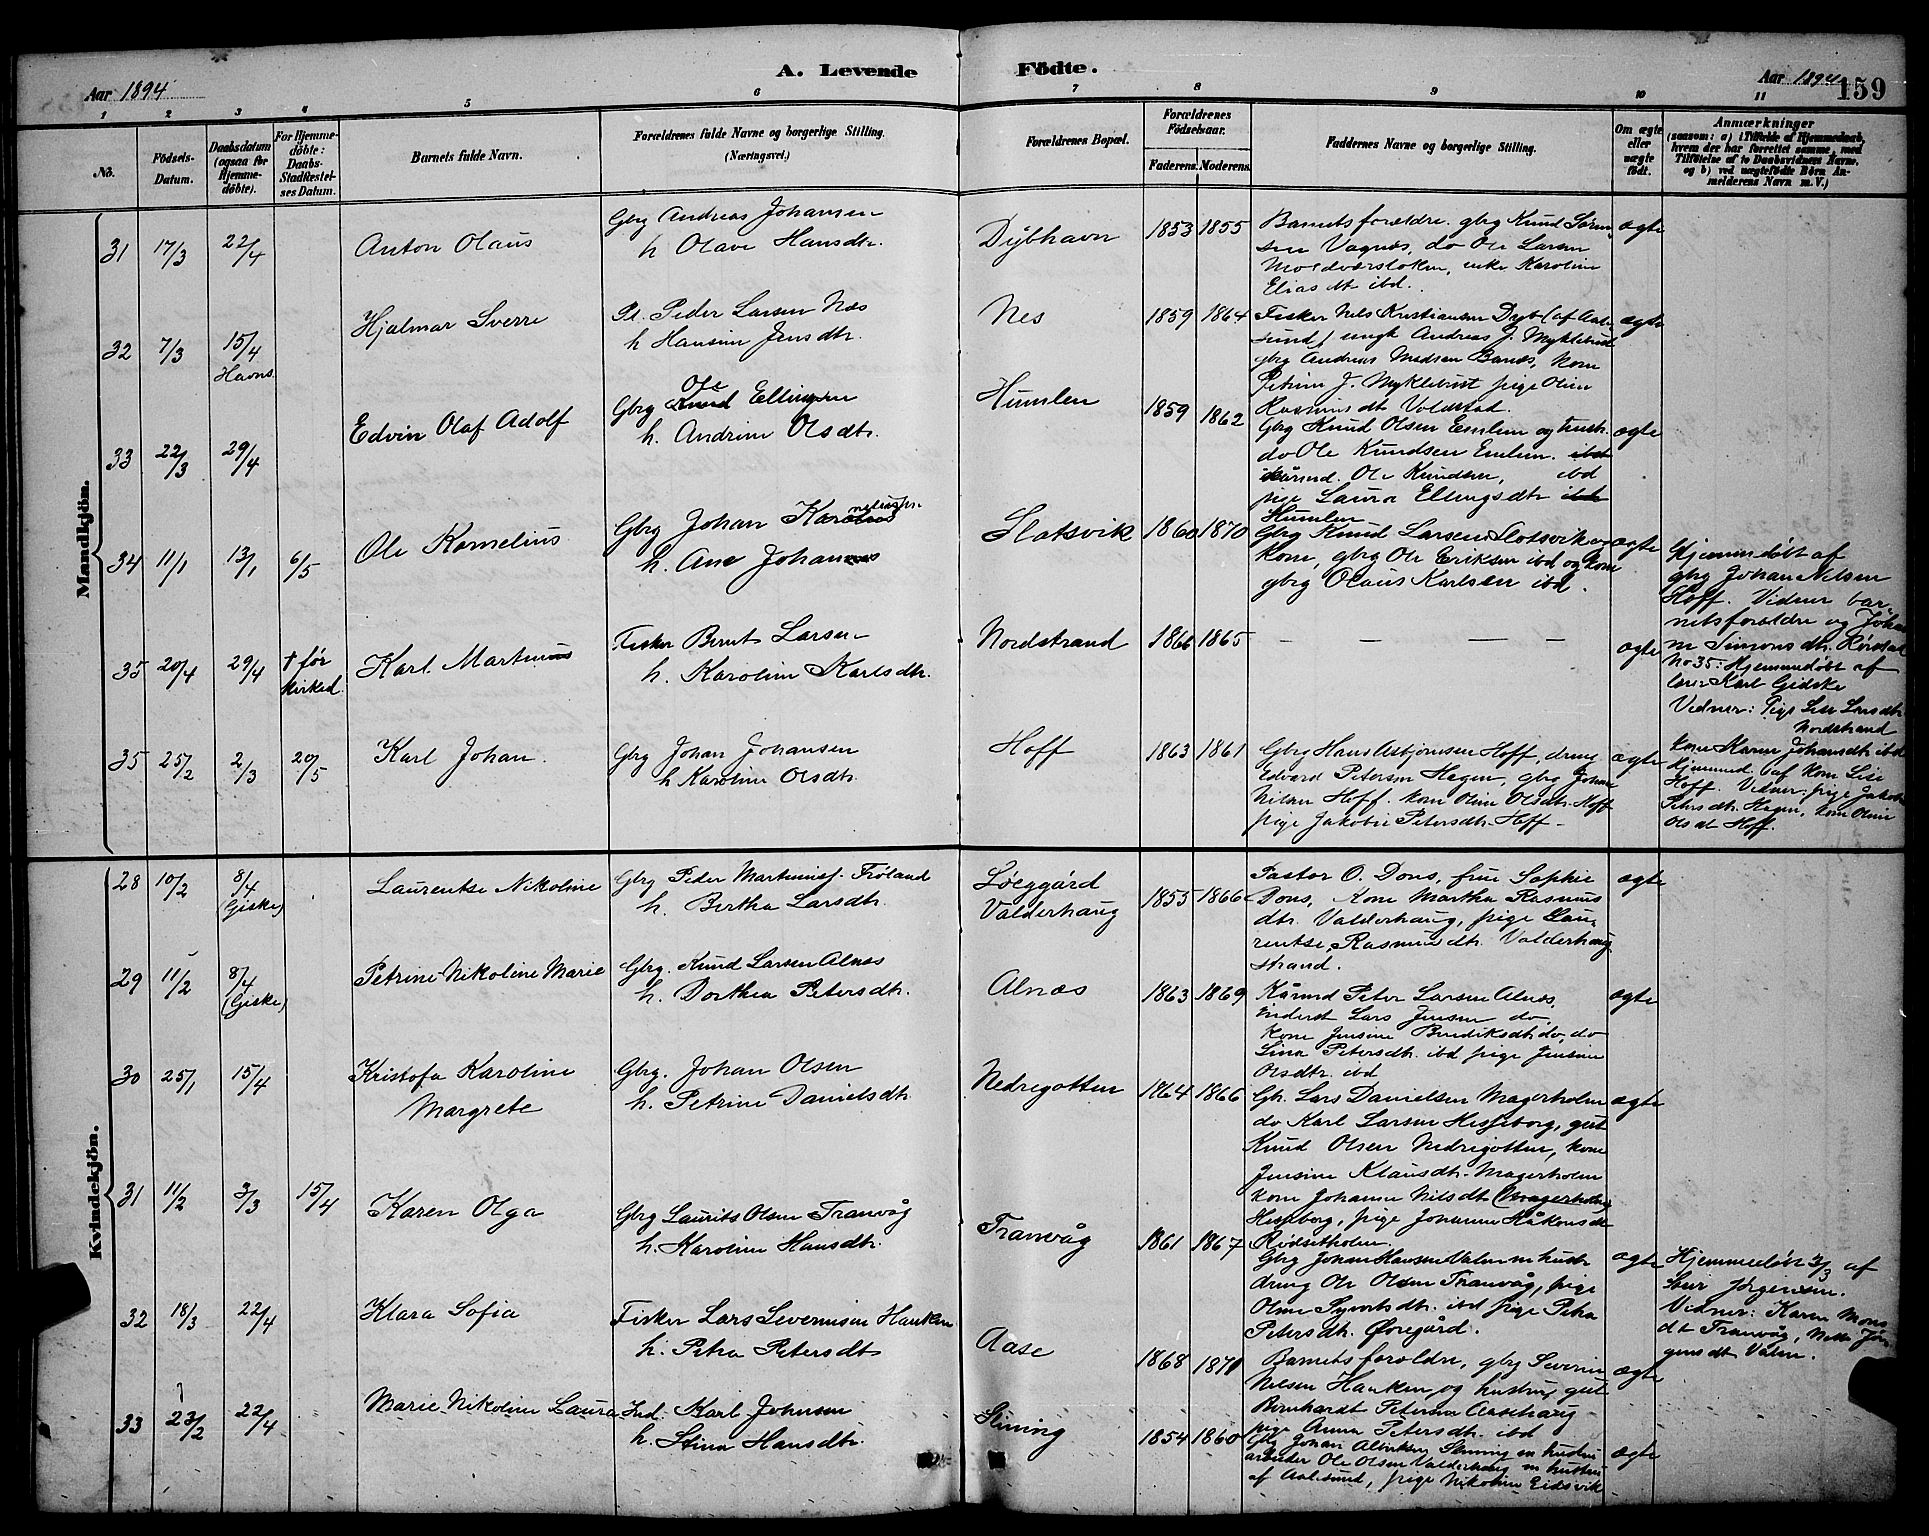 Aar 1894
A. Levende Födte.
Aar 1894
159
1 2 3 4 5 6 7 8 9 10 11
No.
Födsels-
Datum.
Daabsdatum
(ogsaa for
Hjemme-
döbte).
For Hjemme-
döbte:
Daabs-
Stadfæstel-
ses Datum.
Barnets fulde Navn.
Forældrenes fulde Navne og borgerlige Stilling.
(Næringsvei.)
Forældrenes Bopæl.
Forældrenes
Födselsaar.
Faderens. Moderens.
Faddernes Navne og borgerlige Stilling.
Om ægte
eller
uægte
födt.
Anmærkninger
(saasom: a) i Tilfælde af Hjemmedaab,
hvem der har forrettet samme, med
Tilföielse af to Daabsvidners Navne,
og b) ved uægtefödte Börn An-
melderens Navn m. V.)
Mandkjön.
31 17/3 22/4
Anton Olaus
Gbrg Andreas Johansen
h Olave Hansdtr.
Dybhavn
1853 1855
Barnets forældre. gbrg Knud Sören-
sen Vagnes, do Ole Larsen
Moldværsloken, enke Karoline
Elias dt ibd.
ægte
32 7/3 15/4
Havns.
Hjalmar Sverre
Pl. Peder Larsen Næs
h Hansine Jensdtr.
Nes
1859 1864
Fisker Nels Kristiansen Dyb (af Aale-
sund) ungk Andreas J. Myklebust
gbrg Andreas Madsen Banes, kone
Petrine J. Myklebust pige Oline
Rasmus dt Voldstad.
ægte
33 22/3 29/4
Edvin Olaf Adolf
Gbrg Ole Ellingsen
h. Andrine Olsdtr.
Humlen
1859 1862
Gbrg Knud Olsen Emlem og hustr.
do Ole Knudsen Emlem.
kårmd. Ole Knudsen, ibd
pige Laura Ellingsdtr
Humlen
ægte
34 11/1 13/1 6/5
Ole Kornelius
Gbrg Johan Korneliussen
h. Ane Johans
Slotsvik
1860 1870
Gbrg Knud Larsen Slotsvik og
kone, gbrg Ole Eriksen ibd og kone
gbrg Olaus Karlsen ibd.
ægte
Hjemmedøbt af
gbrg Johan Nelsen
Hoff. Vidner bar-
netsforældre og Johan
ne Simons dtr. Rørstad
35 20/4 29/4 † før
kirked.
Karl Martinus
Fisker Bernt Larsen
h. Karoline Karlsdtr.
Nordstrand
1866 1865
— — — —
ægte
No 35: Hjemmedøbt af
lærer Karl Gidske
Vidner: Pige Lise Larsdtr
Nordstrand
kone Karen Johansdtr ibd
35 25/2 2/3 20/5
Karl Johan.
Gbrg Johan Johansen
h Karoline Olsdtr.
Hoff
1863 1861
Gbrg Hans Asbjørnsen Hoff, dreng
Edvard Petersen Hagen, gbrg Johan
Nilsen Hoff. kone Oline Olsdtr. Hoff
pige Jakobine Petersdtr. Hoff.
ægte
Hjemmed. af kone Lise
Hoff. Vidner: pige Jakob
Petersdtr. Hagen, kone Oline
Olsdt Hoff.
Kvindekjön.
28 10/2 8/4
(Giske)
Laurentse Nikoline
Gbrg Peder Martinusf. Frøland
h. Bertha Larsdtr.
Løeggård
Valderhaug
1855 1866
Pastor O. Dons, frue Sophie
Dons, Kone Martha Rasmus
dtr. Valderhaug, pige Lau-
rentse Rasmusdtr. Valderhaug
strand.
ægte
29 11/2 8/4
(Giske)
Petrine Nikoline Marie
Gbrg. Knud Larsen Alnæs
h. Dorthea Petersdtr.
Alnæs
1863 1869
Kårmd Peter Larsen Alnæs,
Inderst Lars Jensen do,
kone Jensine Bendiksdtr do, do
Lina Petersdtr. ibd, pige Jensine
Olsdtr. ibd
ægte
30 25/1 15/4
Kristofa Karoline
Margrete
Gbrg. Johan Olsen
h. Petrine Danielsdtr.
Nedregotten
1864 1866
Gb. Lars Danielsen Magerholm
do Karl Larsen Hesseberg, gut
Knud Olsen Nedregotten, kone
Jensine Klausdtr. Magerholm
kone Johanne Nilsdt (Magerholm)
Hesseberg, pige Johanne Håkonsdt
Rødsetholm.
ægte
31 11/2 3/3 15/4
Karen Olga
Gbrg Laurits Olsen Tranvåg
h. Karoline Hansdtr.
Tranvåg
1861 1867
Gbrg Johan Hansen Valen m hustr.
dreng Ole Olsen Tranvåg, pige
Oline Syvertsdtr. ibd pige Petra
Petersdtr. Øvregård.
ægte
Hjemmedøbt 3/3 af
Siver Jørgensen.
Vidner: Karen Mons
dt Tranvåg, Nille Jør-
gensdt Valen.
32 18/3 22/4
Klara Sofia
Fisker Lars Severinsen Hauken
h. Petra Petersdt
Aase
1868 1871
Barnets forældre, gbrg Severin
Nelsen Hauken og hustru, gut
Bernhardt Petersen Aasehaug
pige Anna Petersdtr. ibd
ægte
33 23/2 22/4
Marie Nikoline Laura
Ind. Karl Johnsen
h. Stina Hansdtr.
Slining
1854 1860
Gbrg Johan Albrektsen Slinning en hustru
arbeider Ole Olsen Valderhaug m hustru
af Aalesund, pige Nikoline Eidsvik
ægte